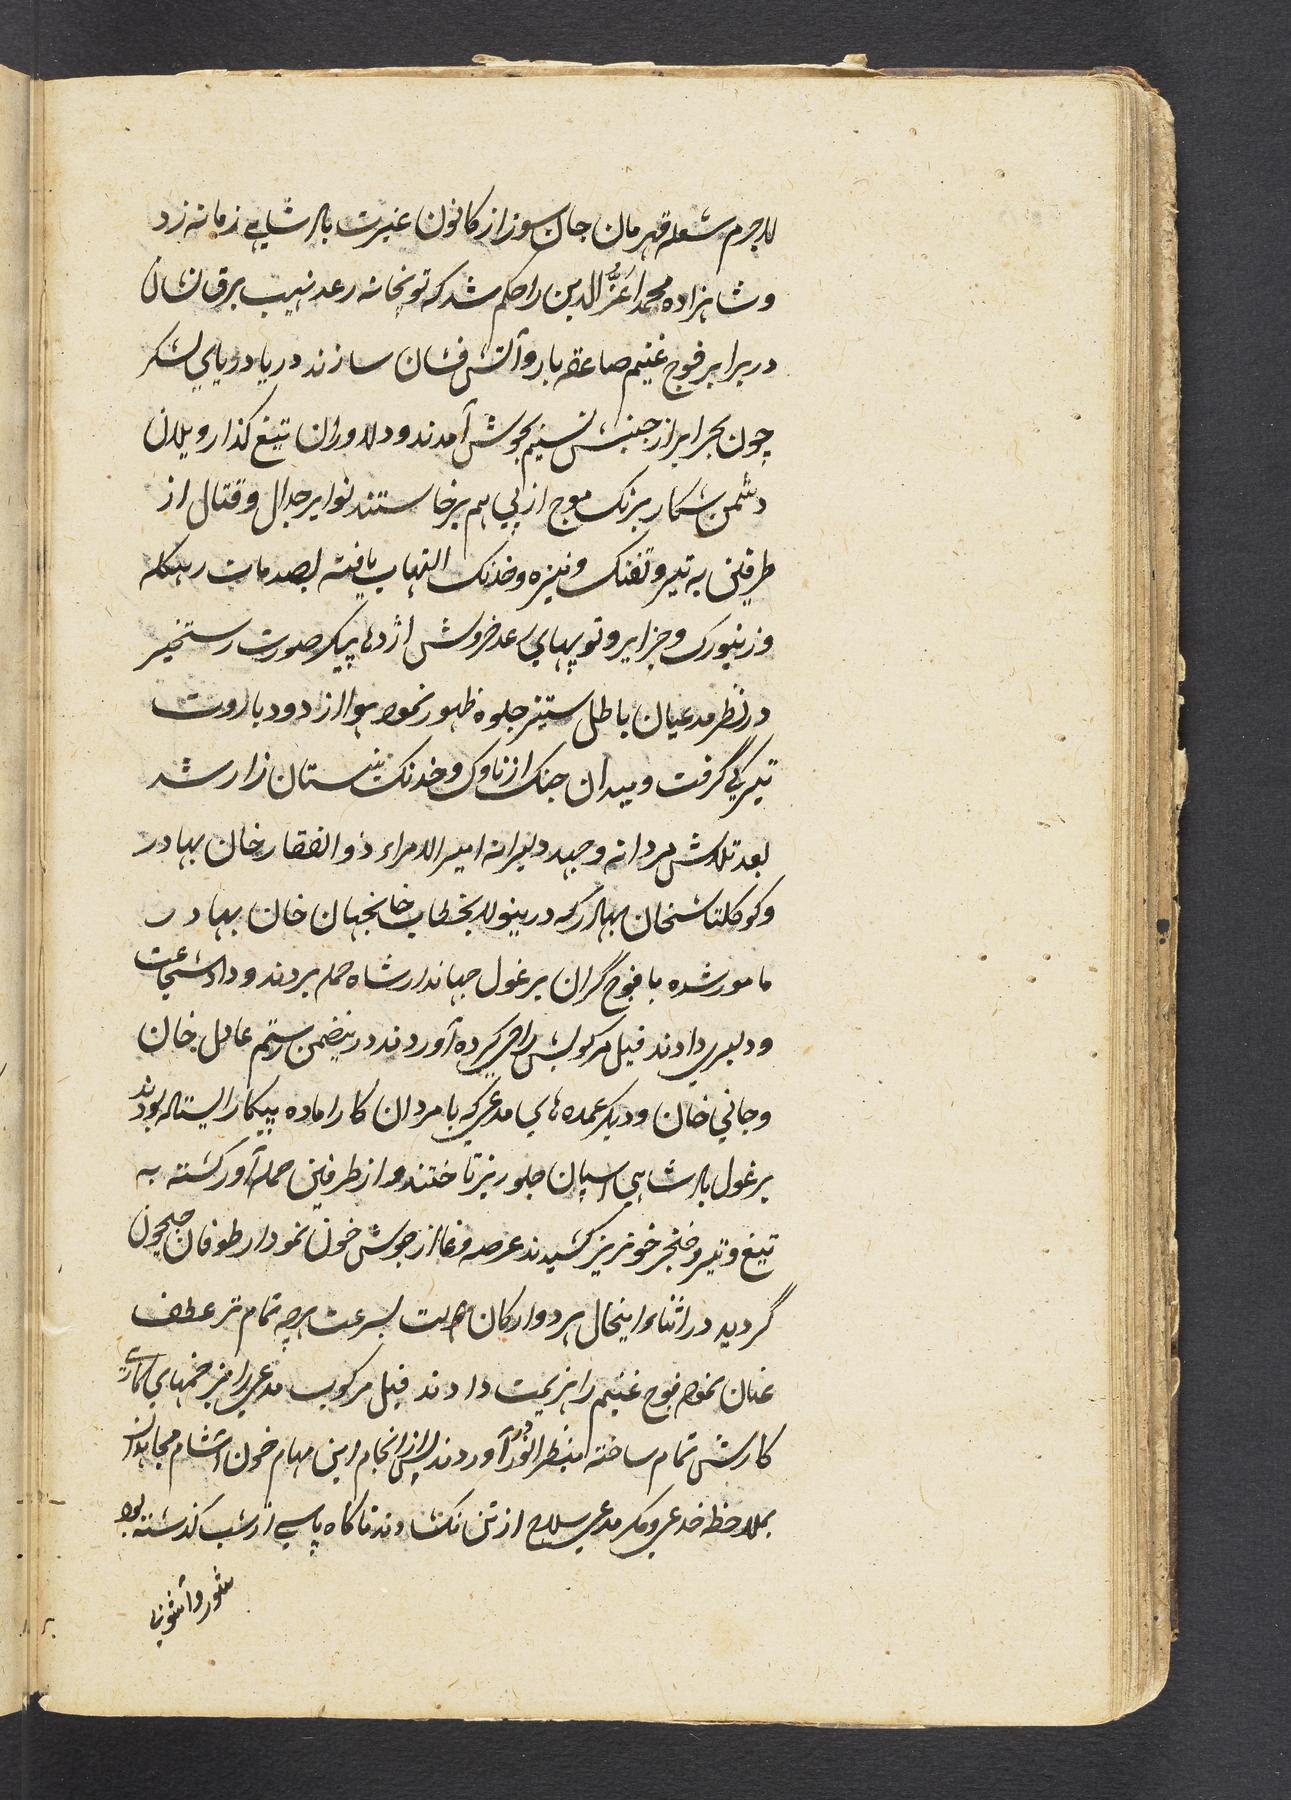 لاجرم شعله قهرمان جان سوز از کانون غیرت بادشاهے زمانه زد
و شاهزاده محمد اعزُّ الدین را حکم شد که توپخانه رعد نهیب برق نشان
در برابر فوج غنیم صاعقه بار و آتش فشان سازند دریا دریای لشکر
چون بحر ابر از جنبش نسیم بجوش آمدند و دلاوران تیغ کذار و یلان
دشمن شکار برنک موج از پی هم برخاستند نوایر جدال و قتال از
طرفین به تیر و تفنک و نیزه و خدنک التهاب یافته بصدمات رهکله
و زنبورک و جزایر و توپهای رعد خروش اژدها پیکر صورت رستخیز
در نظر مدعیان باطل ستیز جلوه ظهور نموده هوا از دود باروت
تیرگی گرفت و میدان جنک از ناوک و خدنک نیستان زار شد
بعد تلاش مردانه و جهد دلیرانه امیر الامراء ذو الفقار خان بهادر
و کوکلتاشخان بهادر که درینولا بخطاب خانجهان خان بهادر
مامور شده با فوج گران بر غول جهاندار شاه حمله بردند و داد شجاعت
و دلیری دادند فیل مرکوبش را پی کرده آوردند درینضمن رستم عادل خان
و جانی خان و دیکر عمده های مدعی که با مردان کار اماده پیکار ایستاده بودند
بر غول بادشاهی اسپان جلوریز تاختند و از طرفین حمله آور کشته به
تیغ و تیر و خنجر خونریز کشیدند عرصه وغا از جوش خون نمودار طوفان جیحون
گردید در اثناء اینحال هر دو ارکان دولت بسرعت هرچه تمام تر عطف
عنان نموده فوج غنیم را هزیمت دادند فیل مرکوب مدعی را بزخمهای کاری
کارش تمام ساخته بنظر انور در آوردند پس از انجام این مهام خون اشام مجاهدان
بملاحظه خدعه و مکر مدعی سلاح از تن نکشاوند تا کاه پاسے از شب کذشته بود
شور و آشوبها